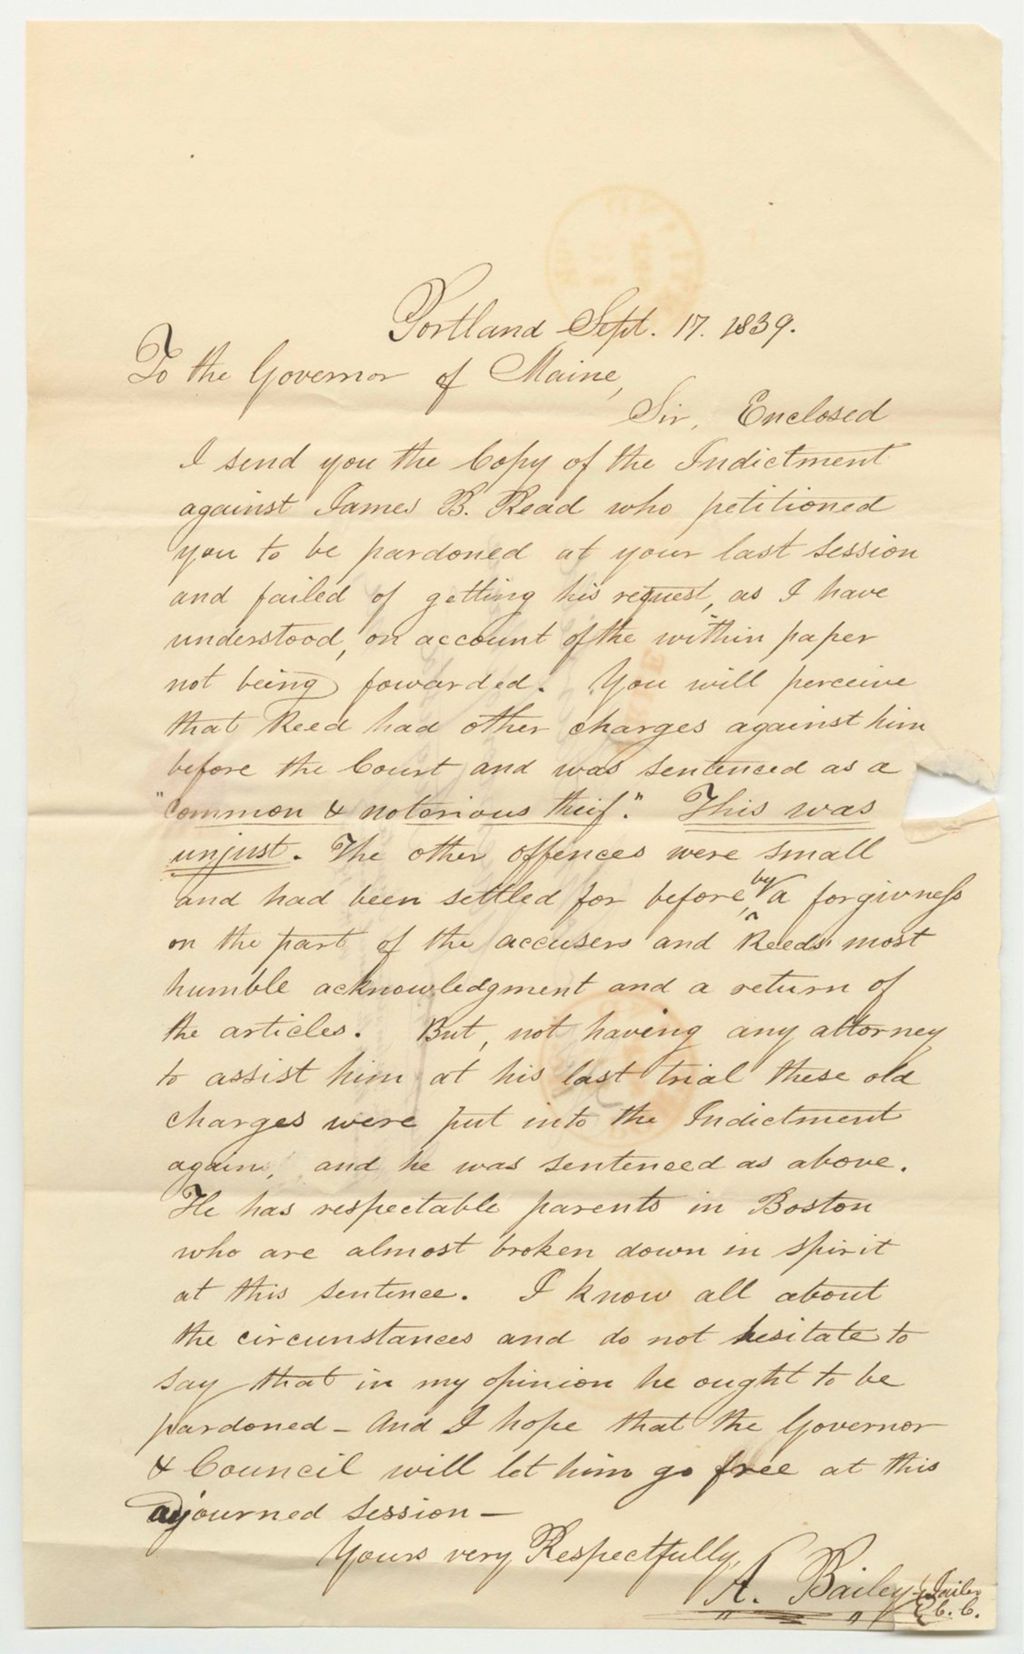 Portland Sept. 17. 1839.
To the Governor of Maine,
Sir, Enclosed
I send you the Copy of the Indictment
against James B. Read who petitioned
you to be pardoned at your last session
and failed of getting his request, as I have
understood, on account of the within paper
not being fowarded. You will perceive
that Reed had other charges against him
before the Court and was sentenced as a
"common & notorious thief." This was
unjust. The other offences were small
and had been settled for before, by a forgivness
on the part of the accusers and Reeds most
humble acknowledgment and a return of
the articles. But, not having any attorney
to assist him at his last trial these old
charges were put into the Indictment
again, and he was sentenced as above.
He has respectable parents in Boston
who are almost broken down in spirit
at this sentence. I know all about
the circumstances and do not hesitate to
say that in my opinion he ought to be
pardoned - And I hope that the Governor
& Council will let him go free at this
adjourned session -
Yours very Respectfully,
A. Bailey Jailer
C. C.